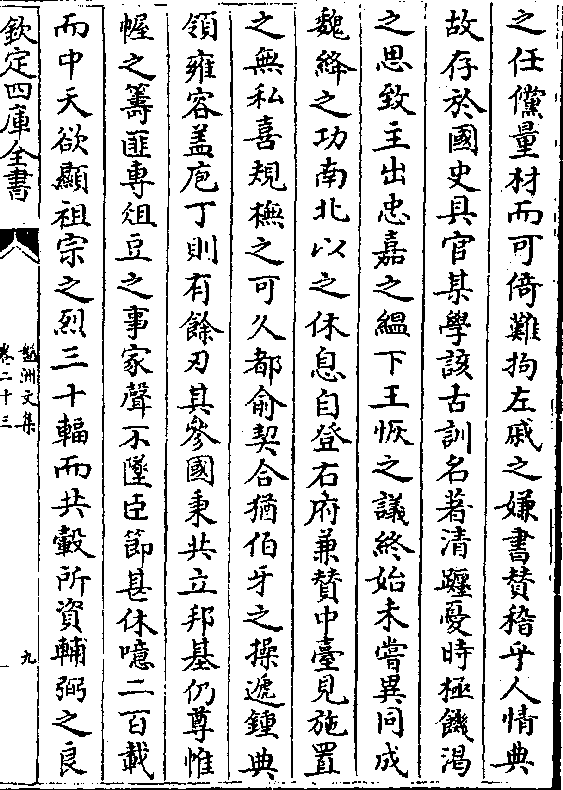 之任儻量材而可倚難拘左戚之嫌書贊稽乎人情典
故存於國史具官某學該古訓名著清躔憂時極饑渴
之思致主出忠嘉之緼下王恢之議終始未嘗異同成
魏絳之功南北以之休息自登右府兼贊中臺見施置
之無私喜規橅之可久都俞契合猶伯牙之操遞鍾典
領雍容盖庖丁則有餘刃其參國秉共立邦基仍尊惟
幄之籌匪專俎豆之事家聲不墜臣節甚休噫二百載
而中天欲顯祖宗之烈三十輻而共轂所資輔弼之良
欽定四庫全書
盤洲文集
卷二十三
九